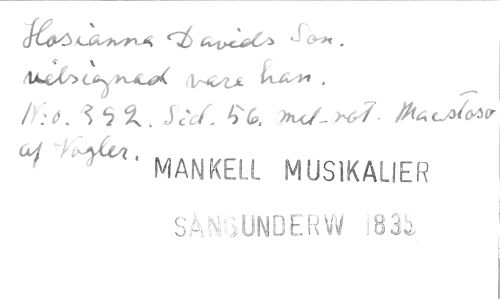 Hosianna Davids Son.
välsignad vare han.
N:o. 392. Sid. 56. mel-not. Maestoso
af Vogler.
MANKELL MUSIKALIER
SÅNGUNDERW 1835